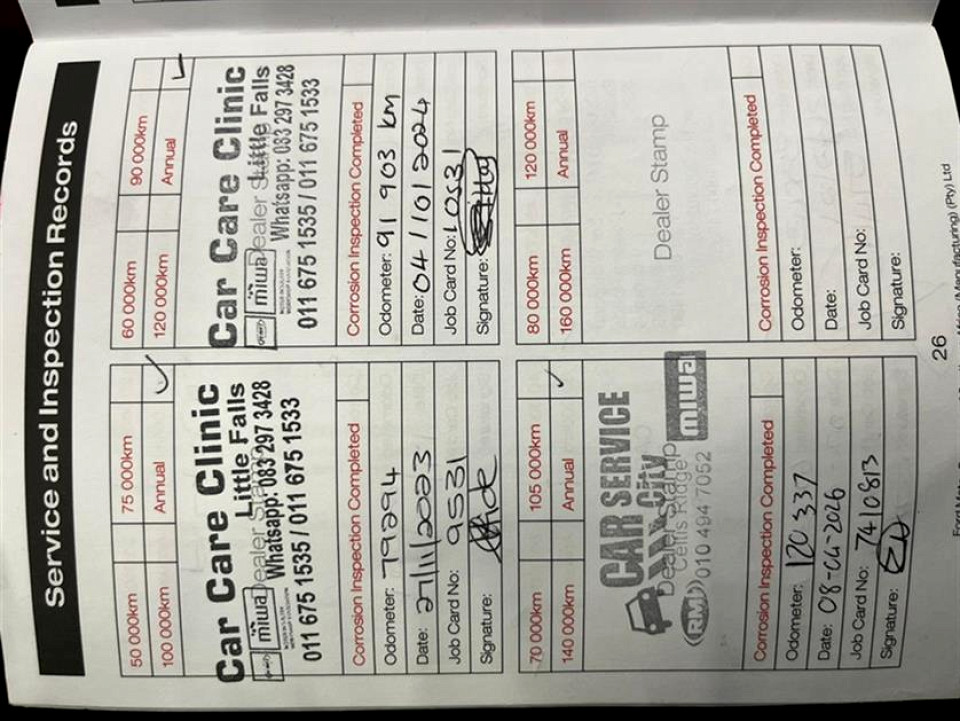 Service and Inspection Records
50 000km 75 000km
100 000km Annual ✓
Car Care Clinic
Little Falls
miwa Dealer Stamp
Whatsapp: 083 297 3428
011 675 1535 / 011 675 1533
Corrosion Inspection Completed
Odometer: 79294
Date: 27/11/2023
Job Card No: 9531
Signature:
60 000km 90 000km
120 000km Annual ✓
Car Care Clinic
Little Falls
miwa Dealer Stamp
Whatsapp: 083 297 3428
011 675 1535 / 011 675 1533
Corrosion Inspection Completed
Odometer: 91 903 km
Date: 04/10/2024
Job Card No: 10531
Signature:
70 000km 105 000km
140 000km Annual ✓
CAR SERVICE
City
Dealer Stamp
Celtis Ridge
RMI 010 494 7052 miwa
Corrosion Inspection Completed
Odometer: 120 337
Date: 08-04-2026
Job Card No: 7410813
Signature:
80 000km 120 000km
160 000km Annual
Dealer Stamp
Corrosion Inspection Completed
Odometer:
Date:
Job Card No:
Signature:
26
(Manufacturing) (Pty) Ltd